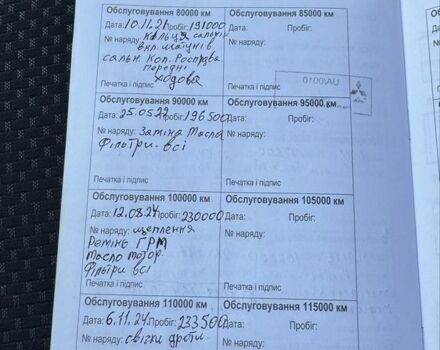 Обслуговування 80000 км
Дата: 10.11.21 Пробіг: 191000
№ наряду: кольця сальн
вкл. шатунів
сальн. Кол. Роспрва
передні
ходова
Печатка і підпис
Обслуговування 85000 км
Дата: Пробіг:
№ наряду:
Печатка і підпис
UA/0010
Обслуговування 90000 км
Дата: 25.05.22 Пробіг: 196500
№ наряду: Заміна Масла
Фільтри всі
Печатка і підпис
Обслуговування 95000 км
Дата: Пробіг:
№ наряду:
Печатка і підпис
Обслуговування 100000 км
Дата: 12.08.24 Пробіг: 230000
№ наряду: щеплення
Ремінь ГРМ
Масло мотор.
Фільтри всі
Печатка і підпис
Обслуговування 105000 км
Дата: Пробіг:
№ наряду:
Печатка і підпис
Обслуговування 110000 км
Дата: 6.11.24 Пробіг: 233500
№ наряду: свічки дроти
Обслуговування 115000 км
Дата: Пробіг:
№ наряду: